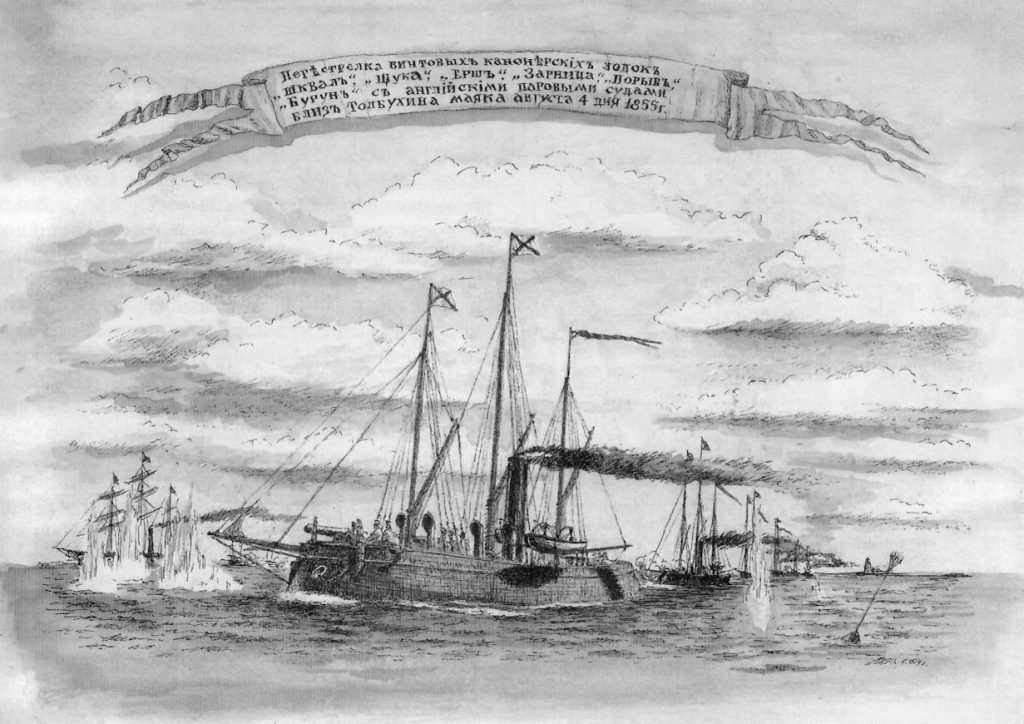 Перѣстрелка винтовыхъ канонѣрскiхъ лодокъ
„Шквалъ“, „Щука“, „Ершъ“, „Зарница“, „Порывъ“,
„Бурунъ“, съ англiйскiми паровыми судами
близъ Толбухина маяка августа 4 дня 1855г.